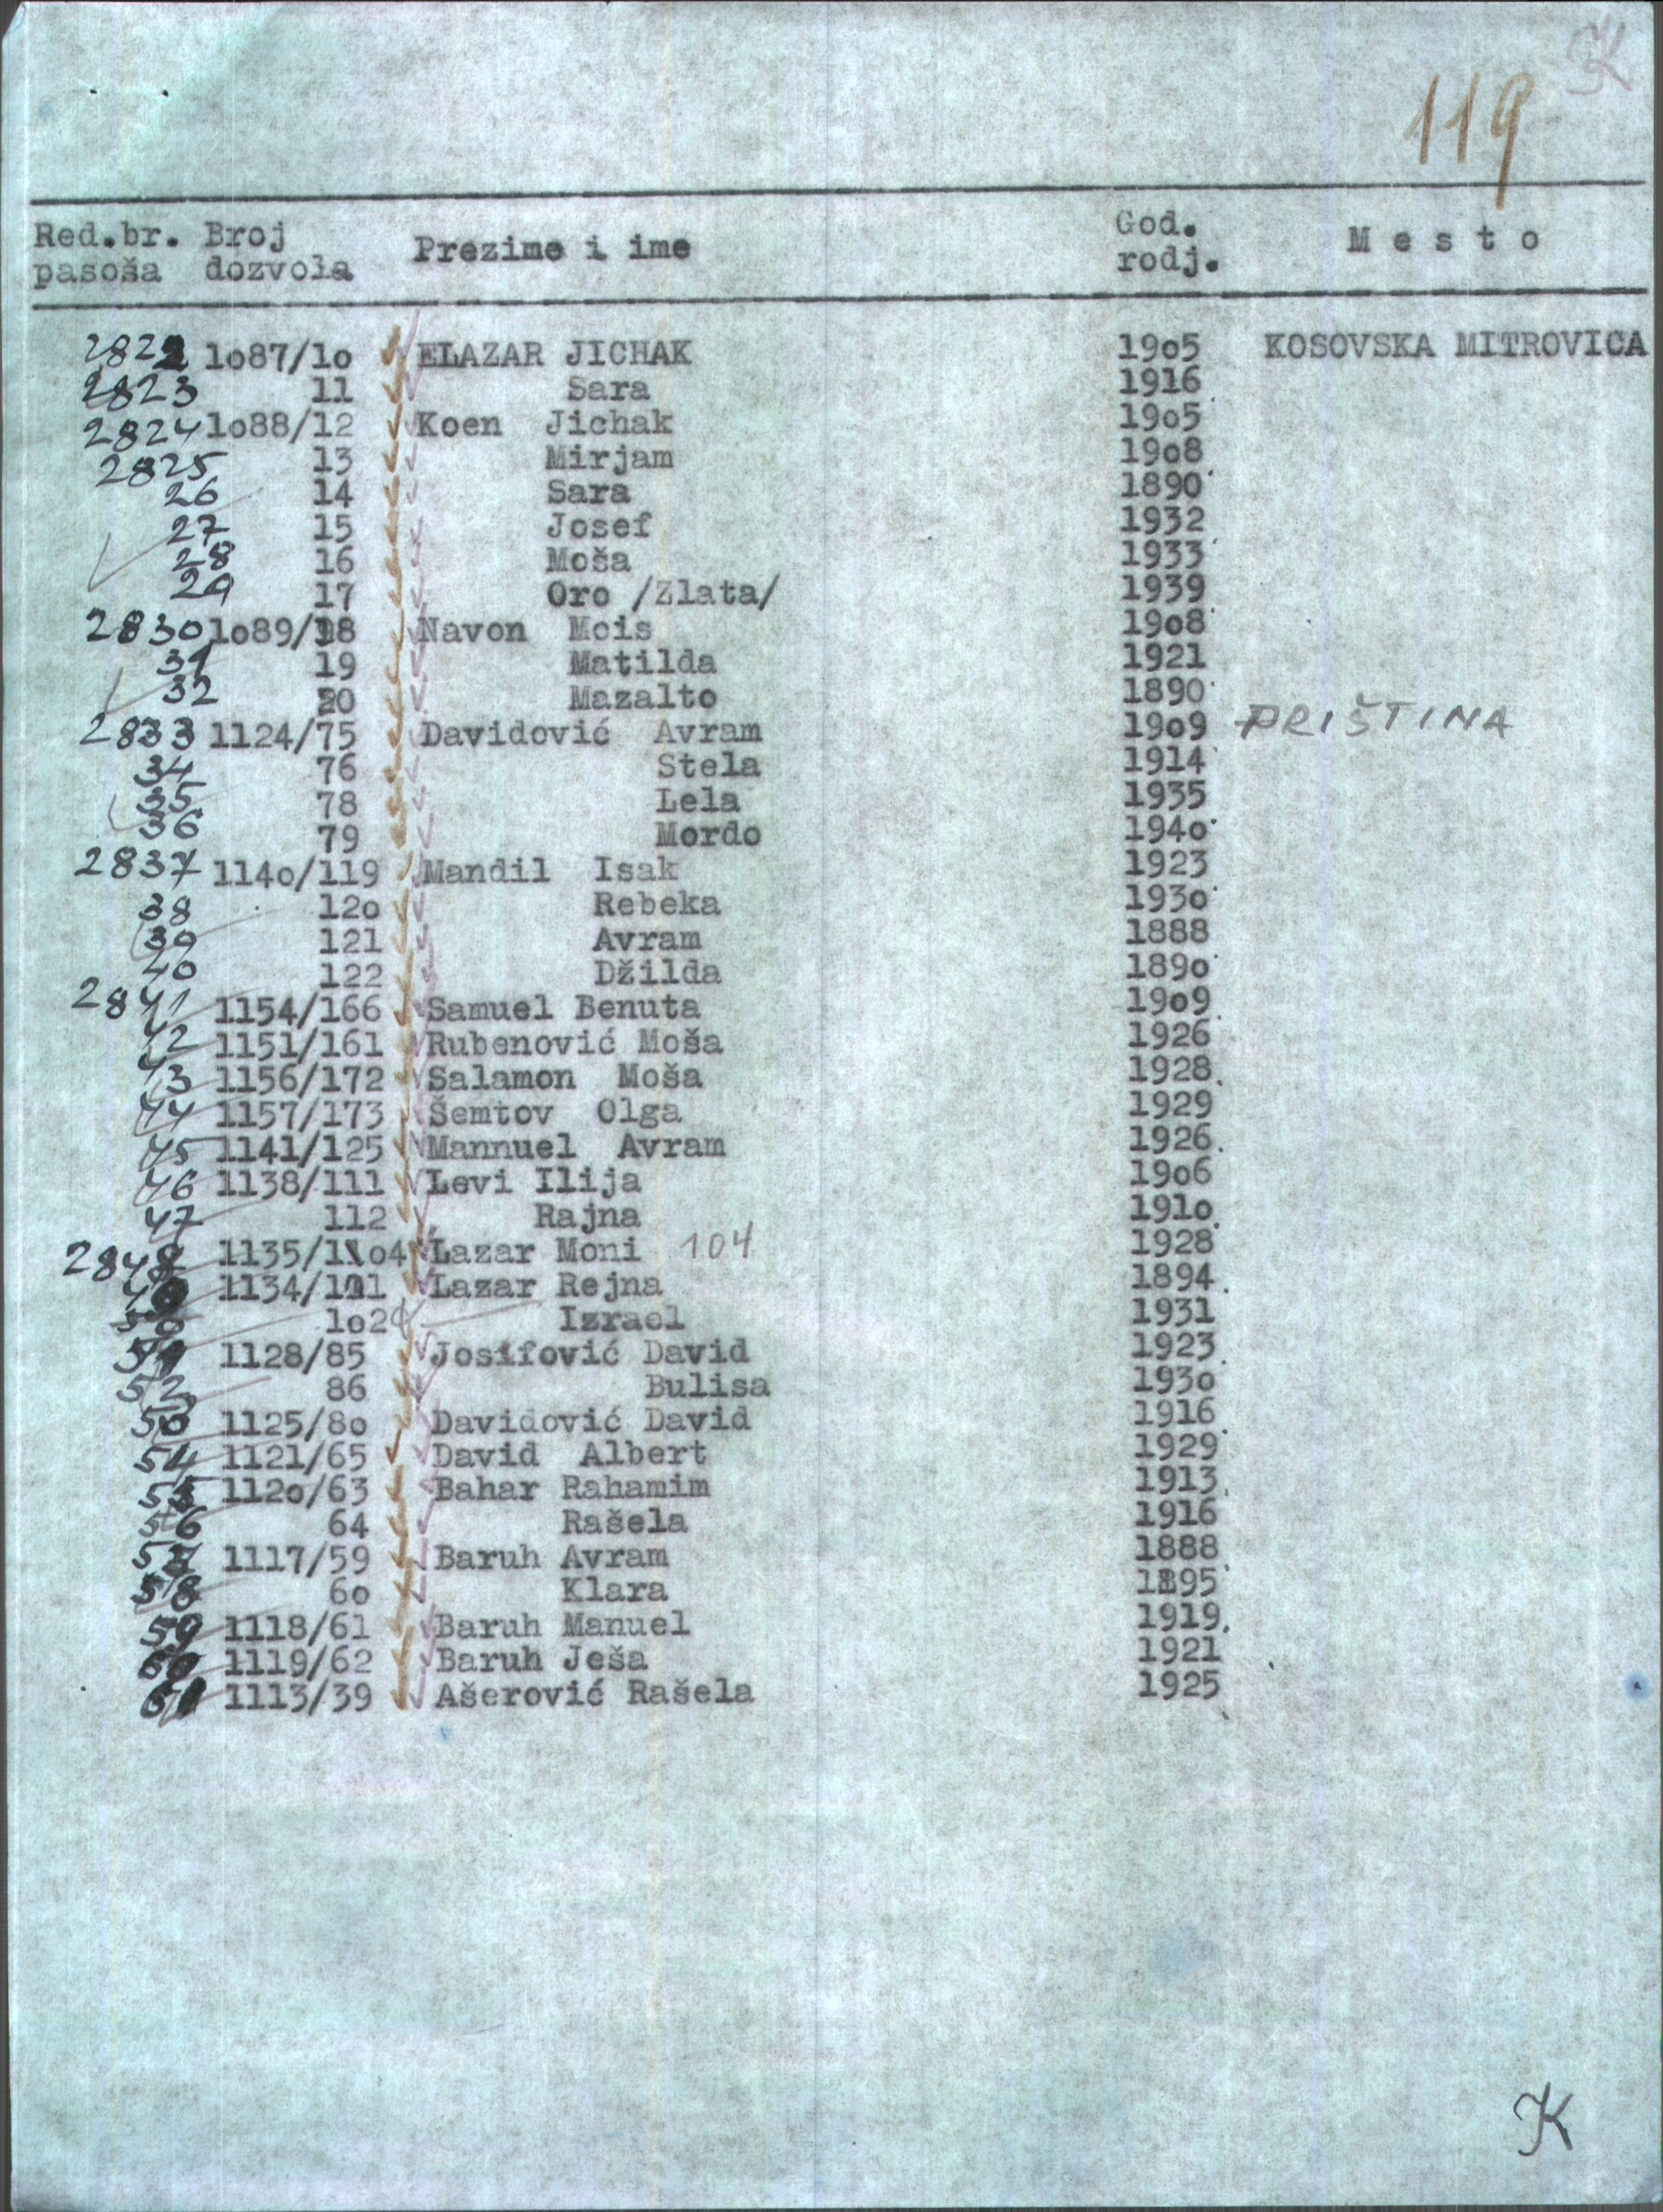 K
119
Red.br. Broj Prezime i ime God. M e s t o
pasoša dozvola rodj.
2822 1o87/1o ELAZAR JICHAK 19o5 KOSOVSKA MITROVICA
2823 11 Sara 1916
2824 1o88/12 Koen Jichak 19o5
2825 13 Mirjam 19o8
26 14 Sara 1890
27 15 Josef 1932
28 16 Moša 1933
29 17 Oro /Zlata/ 1939
2830 1o89/18 Navon Mois 19o8
31 19 Matilda 1921
32 20 Mazalto 1890
2833 1124/75 Davidović Avram 19o9 PRIŠTINA
34 76 Stela 1914
35 78 Lela 1935
36 79 Mordo 194o
2837 114o/119 Mandil Isak 1923
38 12o Rebeka 193o
39 121 Avram 1888
40 122 Džilda 189o
2841 1154/166 Samuel Benuta 19o9
42 1151/161 Rubenović Moša 1926
43 1156/172 Salamon Moša 1928
44 1157/173 Šemtov Olga 1929
45 1141/125 Mannuel Avram 1926
46 1138/111 Levi Ilija 19o6
47 112 Rajna 191o
2848 1135/1o4 Lazar Moni 104 1928
49 1134/101 Lazar Rejna 1894
50 1o2 Izrael 1931
51 1128/85 Josifović David 1923
52 86 Bulisa 193o
1125/8o Davidović David 1916
54 1121/65 David Albert 1929
55 112o/63 Bahar Rahamim 1913
56 64 Rašela 1916
57 1117/59 Baruh Avram 1888
58 6o Klara 1895
59 1118/61 Baruh Manuel 1919
60 1119/62 Baruh Ješa 1921
61 1113/39 Ašerović Rašela 1925
K